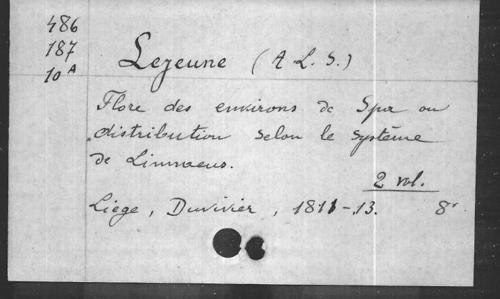 486
187
10 A
Lejeune (A L. S.)
Flore des environs de Spa ou
distribution selon le système
de Linnaeus.
2 vol.
Liège, Duvivier, 1811-13. 8°